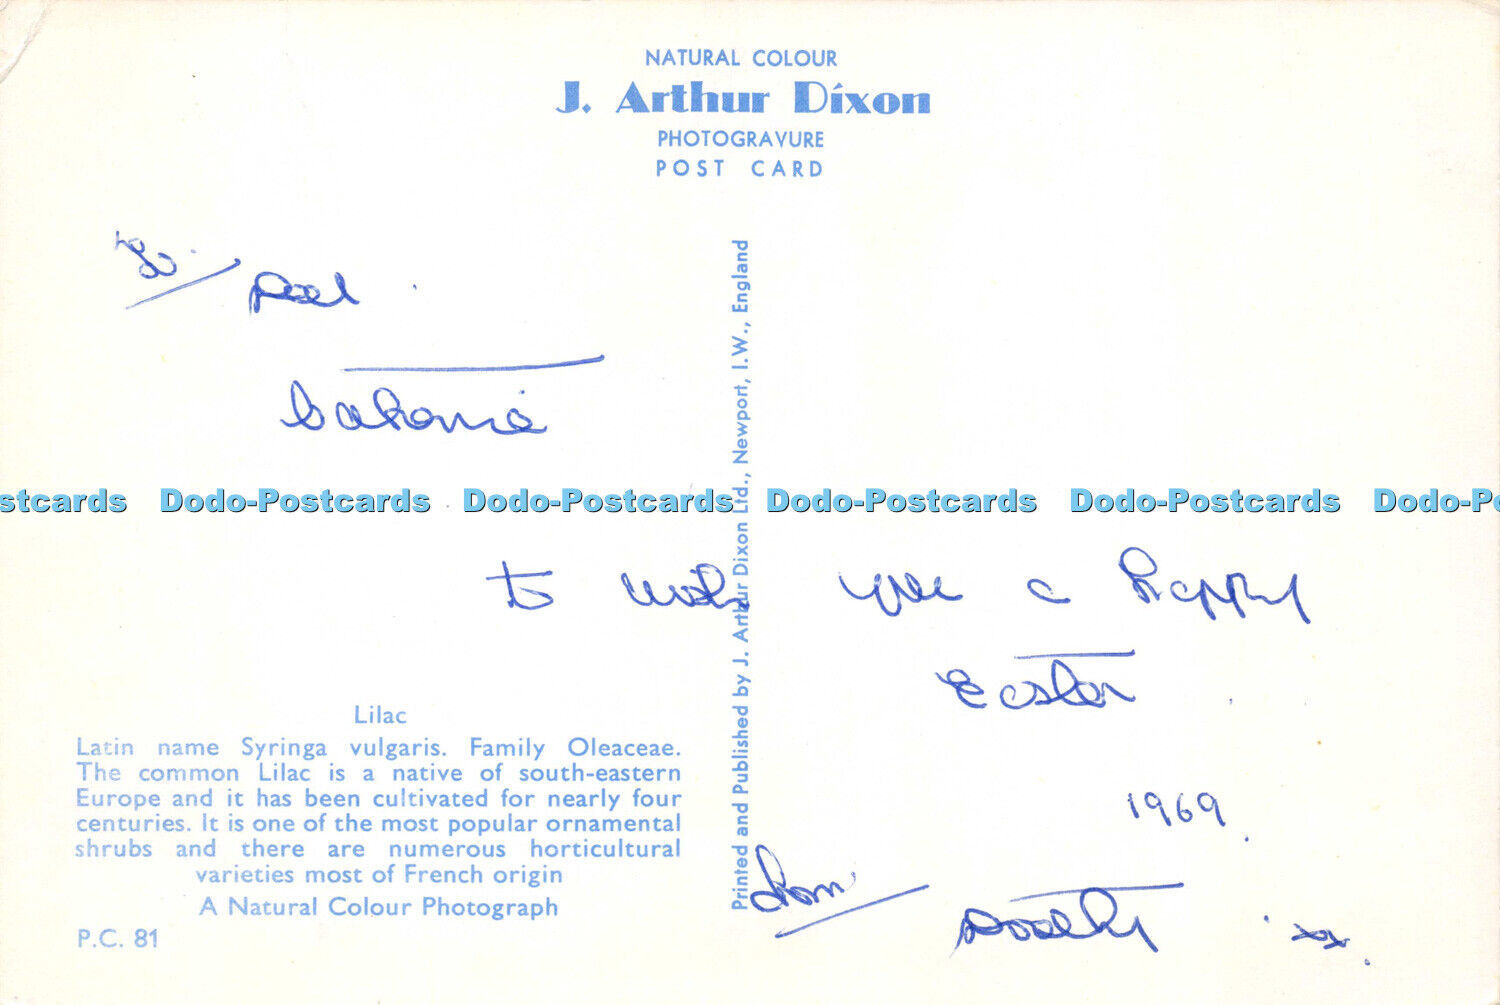 NATURAL COLOUR
J. Arthur Dixon
PHOTOGRAVURE
POST CARD
to wish you a happy
Easter
1969
from
Dorothy xx
Lilac
Latin name Syringa vulgaris. Family Oleaceae.
The common Lilac is a native of south-eastern
Europe and it has been cultivated for nearly four
centuries. It is one of the most popular ornamental
shrubs and there are numerous horticultural
varieties most of French origin
A Natural Colour Photograph
P.C. 81
Printed and Published by J. Arthur Dixon Ltd., Newport, I.W., England
stcards Dodo-Postcards Dodo-Postcards Dodo-Postcards Dodo-Postcards Dodo-Po